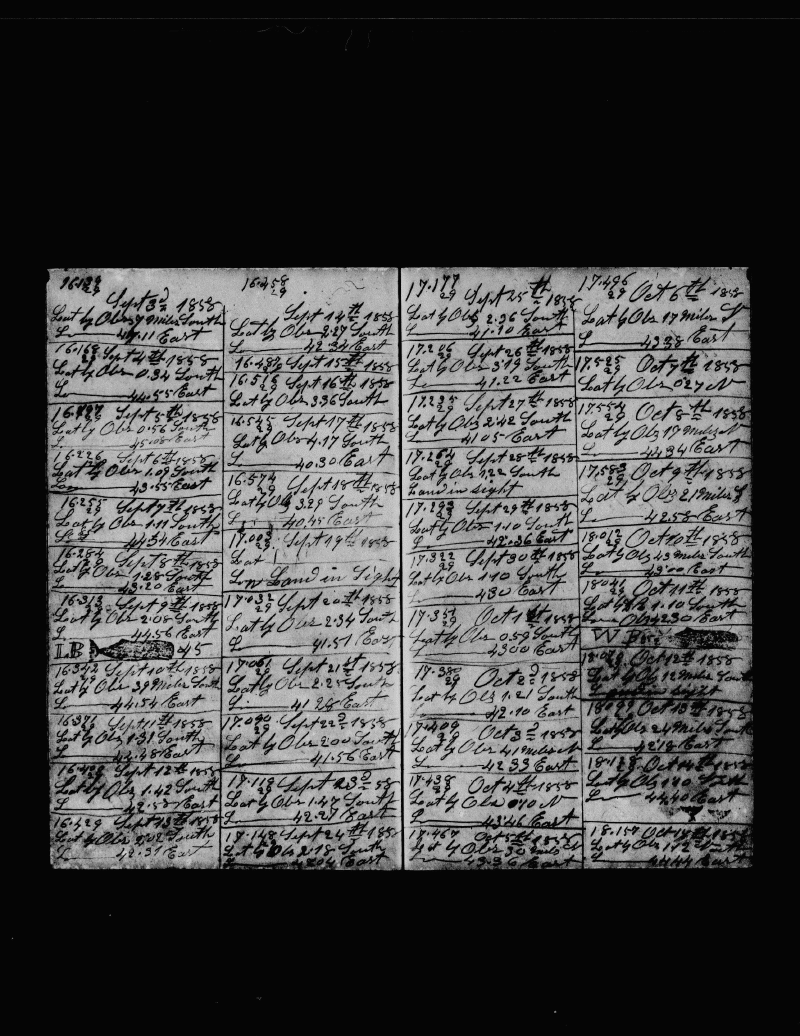 16.139
29
Sept 3d 1858
Lat by Obs 9 Miles South
L 44.11 East
16.168
29 Sept 4th 1858
Lat by Obs 0.34 South
Lo 44.55 East
16.197
29 Sept 5th 1858
Lat by Obs 0.56 South
L 45.08 East
16.226
29 Sept 6th 1858
Lat by Obs 1.09 South
Lon 43.55 East
16.255
29 Sept 7th 1858
Lat by Obs 1.11 South
L 44.34 East
16.284
29 Sept 8th 1858
Lat by Obs 1.28 South
L 43.20 East
16.313
29 Sept 9th 1858
Lat by Obs 2.08 South
L 44.56 East
LB 45
16.342
29 Sept 10th 1858
Lat by Obs 39 Miles South
L 44.54 East
16.371
29 Sept 11th 1858
Lat by Obs 1.31 South
L 44.48 East
16.400
29 Sept 12th 1858
Lat by Obs 1.42 South
L 42.53 East
16.429
29 Sept 13th 1858
Lat by Obs 2.02 South
L 42.37 East
16.458
29
Sept 14th 1858
Lat by Obs 2.27 South
L 42.34 East
16.487
29 Sept 15th 1858
16.516
29 Sept 16th 1858
Lat by Obs 3.36 South
16.545
29 Sept 17th 1858
Lat by Obs 4.17 South
L 40.30 East
16.574
29 Sept 18th 1858
Lat by Obs 3.29 South
L 40.45 East
17.003
29 Sept 19th 1858
Lat
Land in Sight
17.032
29 Sept 20th 1858
Lat by Obs 2.34 South
L 41.51 East
17.061
29 Sept 21st 1858
Lat by Obs 2.25 South
L 41.28 East
17.090
29 Sept 22d 1858
Lat by Obs 2.00 South
L 41.56 East
17.119
29 Sept 23d 58
Lat by Obs 1.47 South
L 42.27 East
17.148
29 Sept 24th 1858
Lat by Obs 2.18 South
L East
17.177
29 Sept 25th 1858
Lat by Obs 2.36 South
L 41.10 East
17.206
29 Sept 26th 1858
Lat by Obs 3.19 South
L 41.22 East
17.235
29 Sept 27th 1858
Lat by Obs 2.42 South
L 41.05 East
17.264
29 Sept 28th 1858
Lat by Obs 1.22 South
Land in Sight
17.293
29 Sept 29th 1858
Lat by Obs 1.10 South
L 42.36 East
17.322
29 Sept 30th 1858
Lat by Obs 1.10 South
L 43.0 East
17.351
29 Oct 1st 1858
Lat by Obs 0.59 South
L 43.00 East
17.380
29 Oct 2d 1858
Lat by Obs 1.21 South
L 42.10 East
17.409
29 Oct 3d 1858
Lat by Obs 41 Miles N
L 42.33 East
17.438
29 Oct 4th 1858
Lat by Obs 0.10 N
L 43.46 East
17.467
29 Oct 5th 1858
Lat by Obs 30 Miles N
43.36 East
17.496
29 Oct 6th 1858
Lat by Obs 17 Miles S
L 43.38 East
17.525
29 Oct 7th 1858
Lat by Obs 0.27 N
17.554
29 Oct 8th 1858
Lat by Obs 17 Miles N
L 44.34 East
17.583
29 Oct 9th 1858
Lat by Obs 21 Miles S
L 42.58 East
18.012
29 Oct 10th 1858
Lat by Obs 43 Miles South
L 43.00 East
18.041
29 Oct 11th 1858
Lat by Obs 1.10 South
42.30 East
W
18.070
29 Oct 12th 1858
Lat by Obs 12 Miles South
Land in Sight
18.099
29 Oct 13th 1858
Lat by Obs 24 Miles South
L 42.18 East
18.128
29 Oct 14th 1858
Lat by Obs 1.40
L 44.40 East
18.157
29 Oct 15th 1858
Lat by Obs South
L 44.44 East